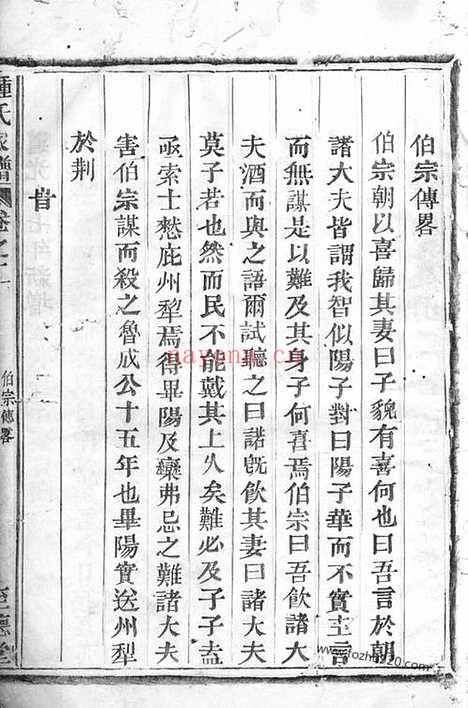 伯宗傳畧
伯宗朝以喜歸其妻曰子貌有喜何也曰吾言於朝
諸大夫皆謂我智似陽子對曰陽子華而不實主言
而無謀是以難及其身子何喜焉伯宗曰吾飲諸大
夫酒而與之語爾試聽之曰諾旣飲其妻曰諸大夫
莫子若也然而民不能戴其上久矣難必及子子盍
亟索士憖庇州犁焉得畢陽及欒弗忌之難諸大夫
害伯宗謀而殺之魯成公十五年也畢陽實送州犁
於荆
鍾氏家譜
卷之
伯宗傳畧
至德堂
navenn.cn
www.fozhu920.com